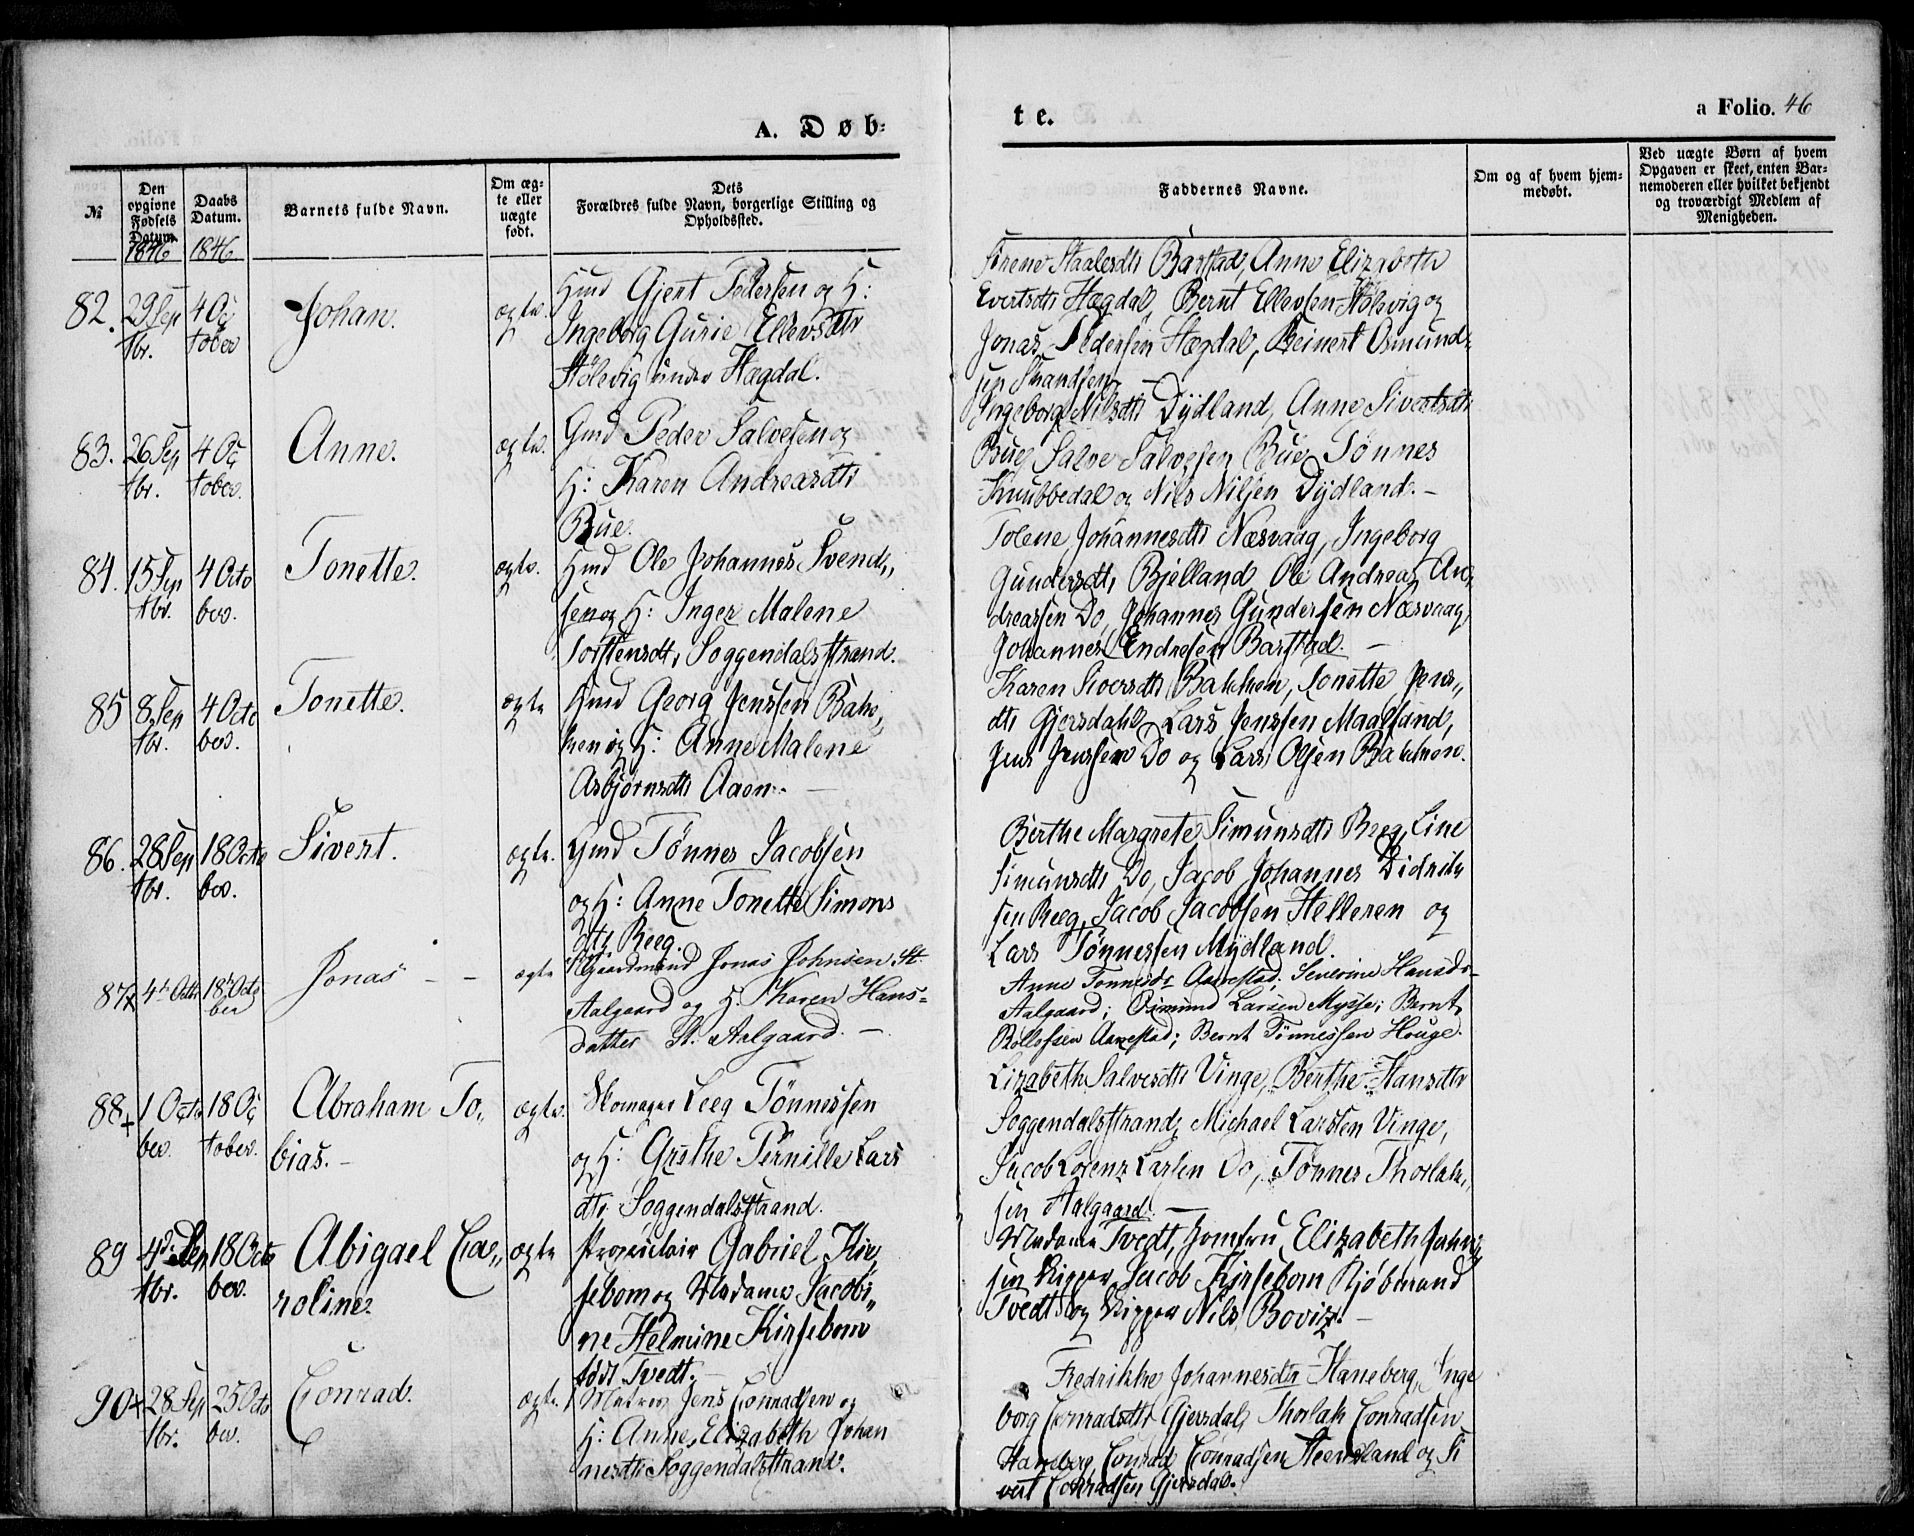 A. Døb-
te.
a Folio. 46
№
Den opgivne Fødsels Datum.
Daabs Datum.
Barnets fulde Navn.
Om ægte eller uægte født.
Dets Forældres fulde Navn, borgerlige Stilling og Opholdssted.
Faddernes Navne.
Om og af hvem hjemmedøbt.
Ved uægte Børn af hvem Opgaven er skeet, enten Barnemoderen eller hvilket bekjendt og troværdigt Medlem af Menigheden.
1846 1846
82. 29 Sep tbr. 4 Oc tober Johan. ægte.
Hmd Gjert Pedersen og H:
Ingeborg Gurie Ellevsdtr
Stølevig under Hægdal.
Sirene Staalesdtr Barstad, Anne Elizabeth
Evertsdtr Hægdal, Bernt Ellevsen Stølsvig og
Jonas Pedersen Hægdal, Reinert Osmund-
sen Strandsen.
83. 26 Sep tbr. 4 Oc tober. Anne. ægte.
Gmd Peder Salvesen og
H: Karen Andreasdtr
Bue.
Ingeborg Nilsdtr Dydland, Anne Sivertsdtr
Bue, Salve Salvesen Bue, Tønnes
Knubbedal og Nils Nilsen Dydland. -
84. 15 Sep tbr. 4 Octo ber. Tonette. ægte.
Hmd Ole Johannes Svend„
sen og H: Inger Malene
Torstensdtr Soggendalsstrand.
Tolene Johannesdtr Næsvaag, Ingeborg
Gundersdtr Bjelland, Ole Andreas An„
dreassen Do, Johannes Gundersen Næsvaag,
Johannes Endresen Barstad. -
85 8 Sep tbr. 4 Octo ber. Tonette. ægte
Hmd Georg Jenssen Bak„
ken og H: Anne Malene
Asbjørnsdtr Aaen. -
Karen Siversdtr Bakken, Tonette Jens„
dtr Gjersdahl, Lars Jenssen Maalsund,
Jens Jenssen Do og Lars Olsen Bakken.
86. 28 Sep tbr. 18 Octo ber. Sivert. ægte.
Gmd Tønnes Jacobsen
og H: Anne Tonette Simons
dtr Reeg.
Berthe Margrete Simunsdtr Reeg, Line
Simunsdtr Do, Jacob Johannes Didrik
sen Reeg, Jacob Jacobsen Helleren og
Lars Tønnessen Mydland.
87 4de Octb 18de Octo ber Jonas - - ægte
Gaardmand Jonas Johnsen St.
Aalgaard og H. Karen Hans-
datter St. Aalgaard. -
Anne Tønnesdtr Aarrestad; Severine Hansdtr
Aalgaard; Osmund Larsen Mysse; Bernt
Rollefsen Aarrestad; Bernt Tønnessen Houge.
88 1 Octo ber. 18 Oc tober. Abraham To„
bias. - ægte.
Skomager Leeg Tønnessen
og H: Grethe Pernille Lars
dtr Soggendalsstrand.
Lizabeth Salvesdtr Vinge, Berthe Hansdtr
Soggendalsstrand, Michael Larssen Vinge,
Jacob Lorenz Larsen Do, Tønnes Thorlak„
sen Aalgaard. -
89 4de Sep tbr. 18 Octo ber. Abigael Ca„
roline. ægte
Proprietair Gabriel Kir„
sebom og Madame Jacobi„
ne Helmine Kirsebom
født Tvedt. -
Madame Tvedt, Jomfru Elizabeth Jahn
sen Skipper Jacob Kirsebom Kjøbmand
Tvedt og Skipper Nils Bovitz. -
90 28 Sep tbr. 25 Octo ber. Conrad. ægte.
Matros Jens Conradsen og
H: Anne Elizabeth Johan
nesdtr Soggendalsstrand.
Fredrikke Johannesdtr Haneberg, Inge
borg Conradsdtr Gjersdal, Thorlak Conradsen
Haneberg, Conrad Conradsen Steensland og Si
vert Conradsen Gjersdal.